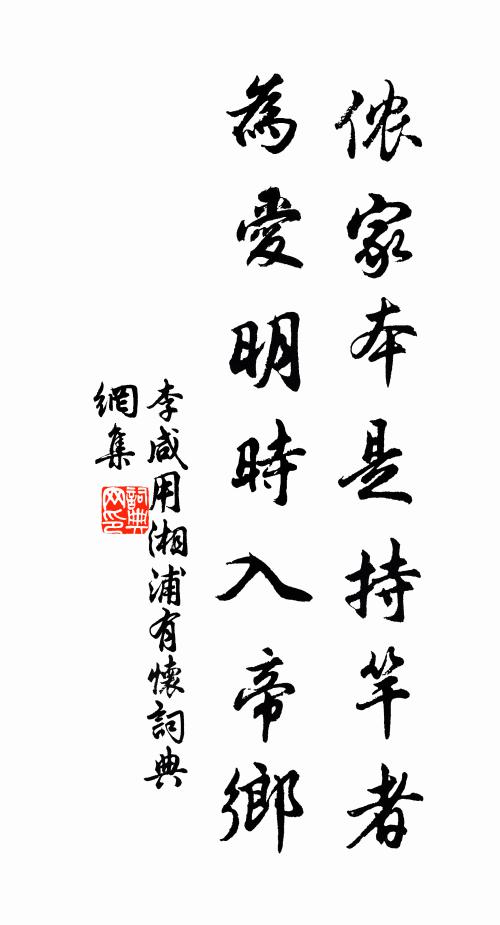 侬家本是持竿者
為愛明時入帝鄉
李咸用湘浦有懷詞典
網集
詞典
网印